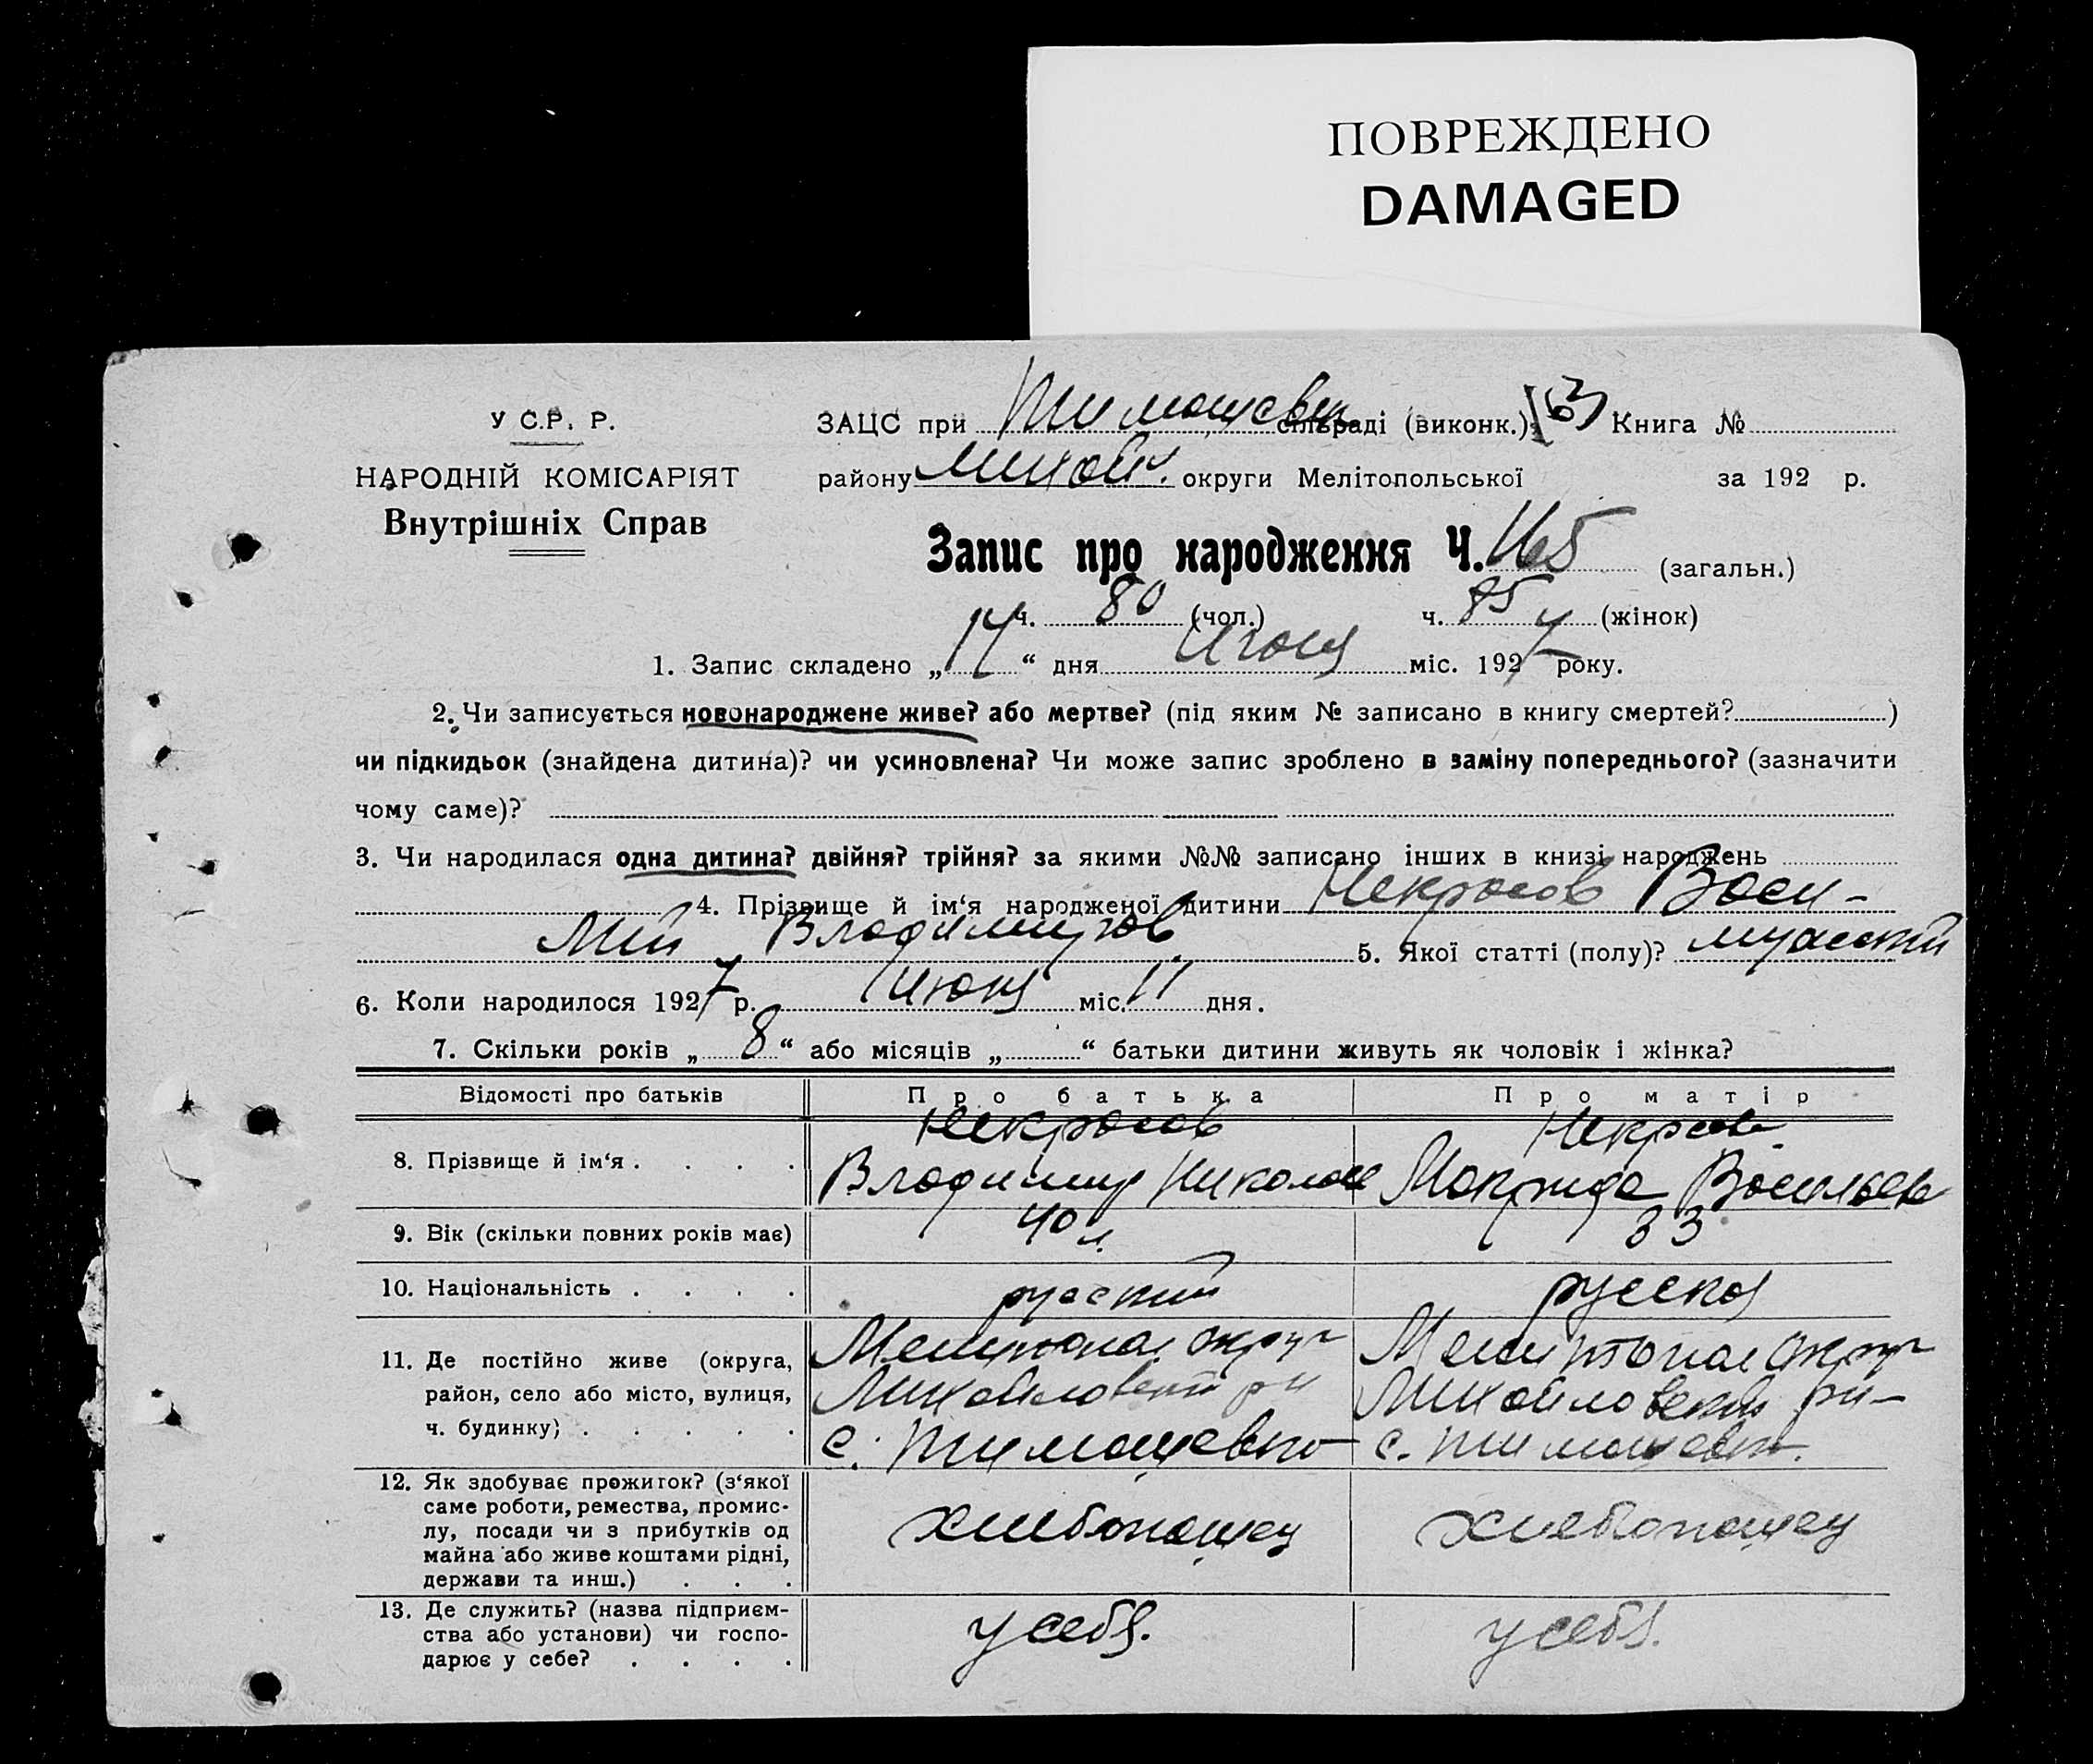 ПОВРЕЖДЕНО
DAMAGED
У С.Р. Р.
НАРОДНІЙ КОМІСАРІЯТ
Внутрішніх Справ
ЗАЦС при Тимошевск сільраді (виконк.) [63] Книга №
району Михайл. округи Мелітопольської за 192 р.
Запис про народження Ч. 165 (загальн.)
ч. 80 (чол.) ч. 85 (жінок)
1. Запис складено „17“ дня Июня міс. 1927 року.
2. Чи записується новонароджене живе? або мертве? (під яким № записано в книгу смертей? )
чи підкидьок (знайдена дитина)? чи усиновлена? Чи може запис зроблено в заміну попереднього? (зазначити
чому саме)?
3. Чи народилася одна дитина? двійня? трійня? за якими №№ записано інших в книзі народжень
4. Прізвище й ім‘я народженої дитини Некрасов Васи-
лий Владимиров 5. Якої статті (полу)? мужский
6. Коли народилося 1927 р. Июня міс. 11 дня.
7. Скільки років „8“ або місяців „ “ батьки дитини живуть як чоловік і жінка?
Відомості про батьків Про батька Про матір
Некрасов Некрасов.
8. Прізвище й ім‘я . . . . Владимир Николае Макрида Васильев
9. Вік (скільки повних років має) 40 л. 33
10. Національність . . . . русский русская
11. Де постійно живе (округа, Мелитопол округ Мелитопол округ
район, село або місто, вулиця, Михайловский рн Михайловский рн
ч. будинку) . . . . . с. Тимошевка с. Тимошевк.
12. Як здобуває прожиток? (з‘якої
саме роботи, ремества, промис-
лу, посади чи з прибутків од хлебопашец хлебопашец
майна або живе коштами рідні,
держави та инш.) . . .
13. Де служить? (назва підприєм-
ства або установи) чи госпо- у себя. у себя.
дарює у себе? . . . .